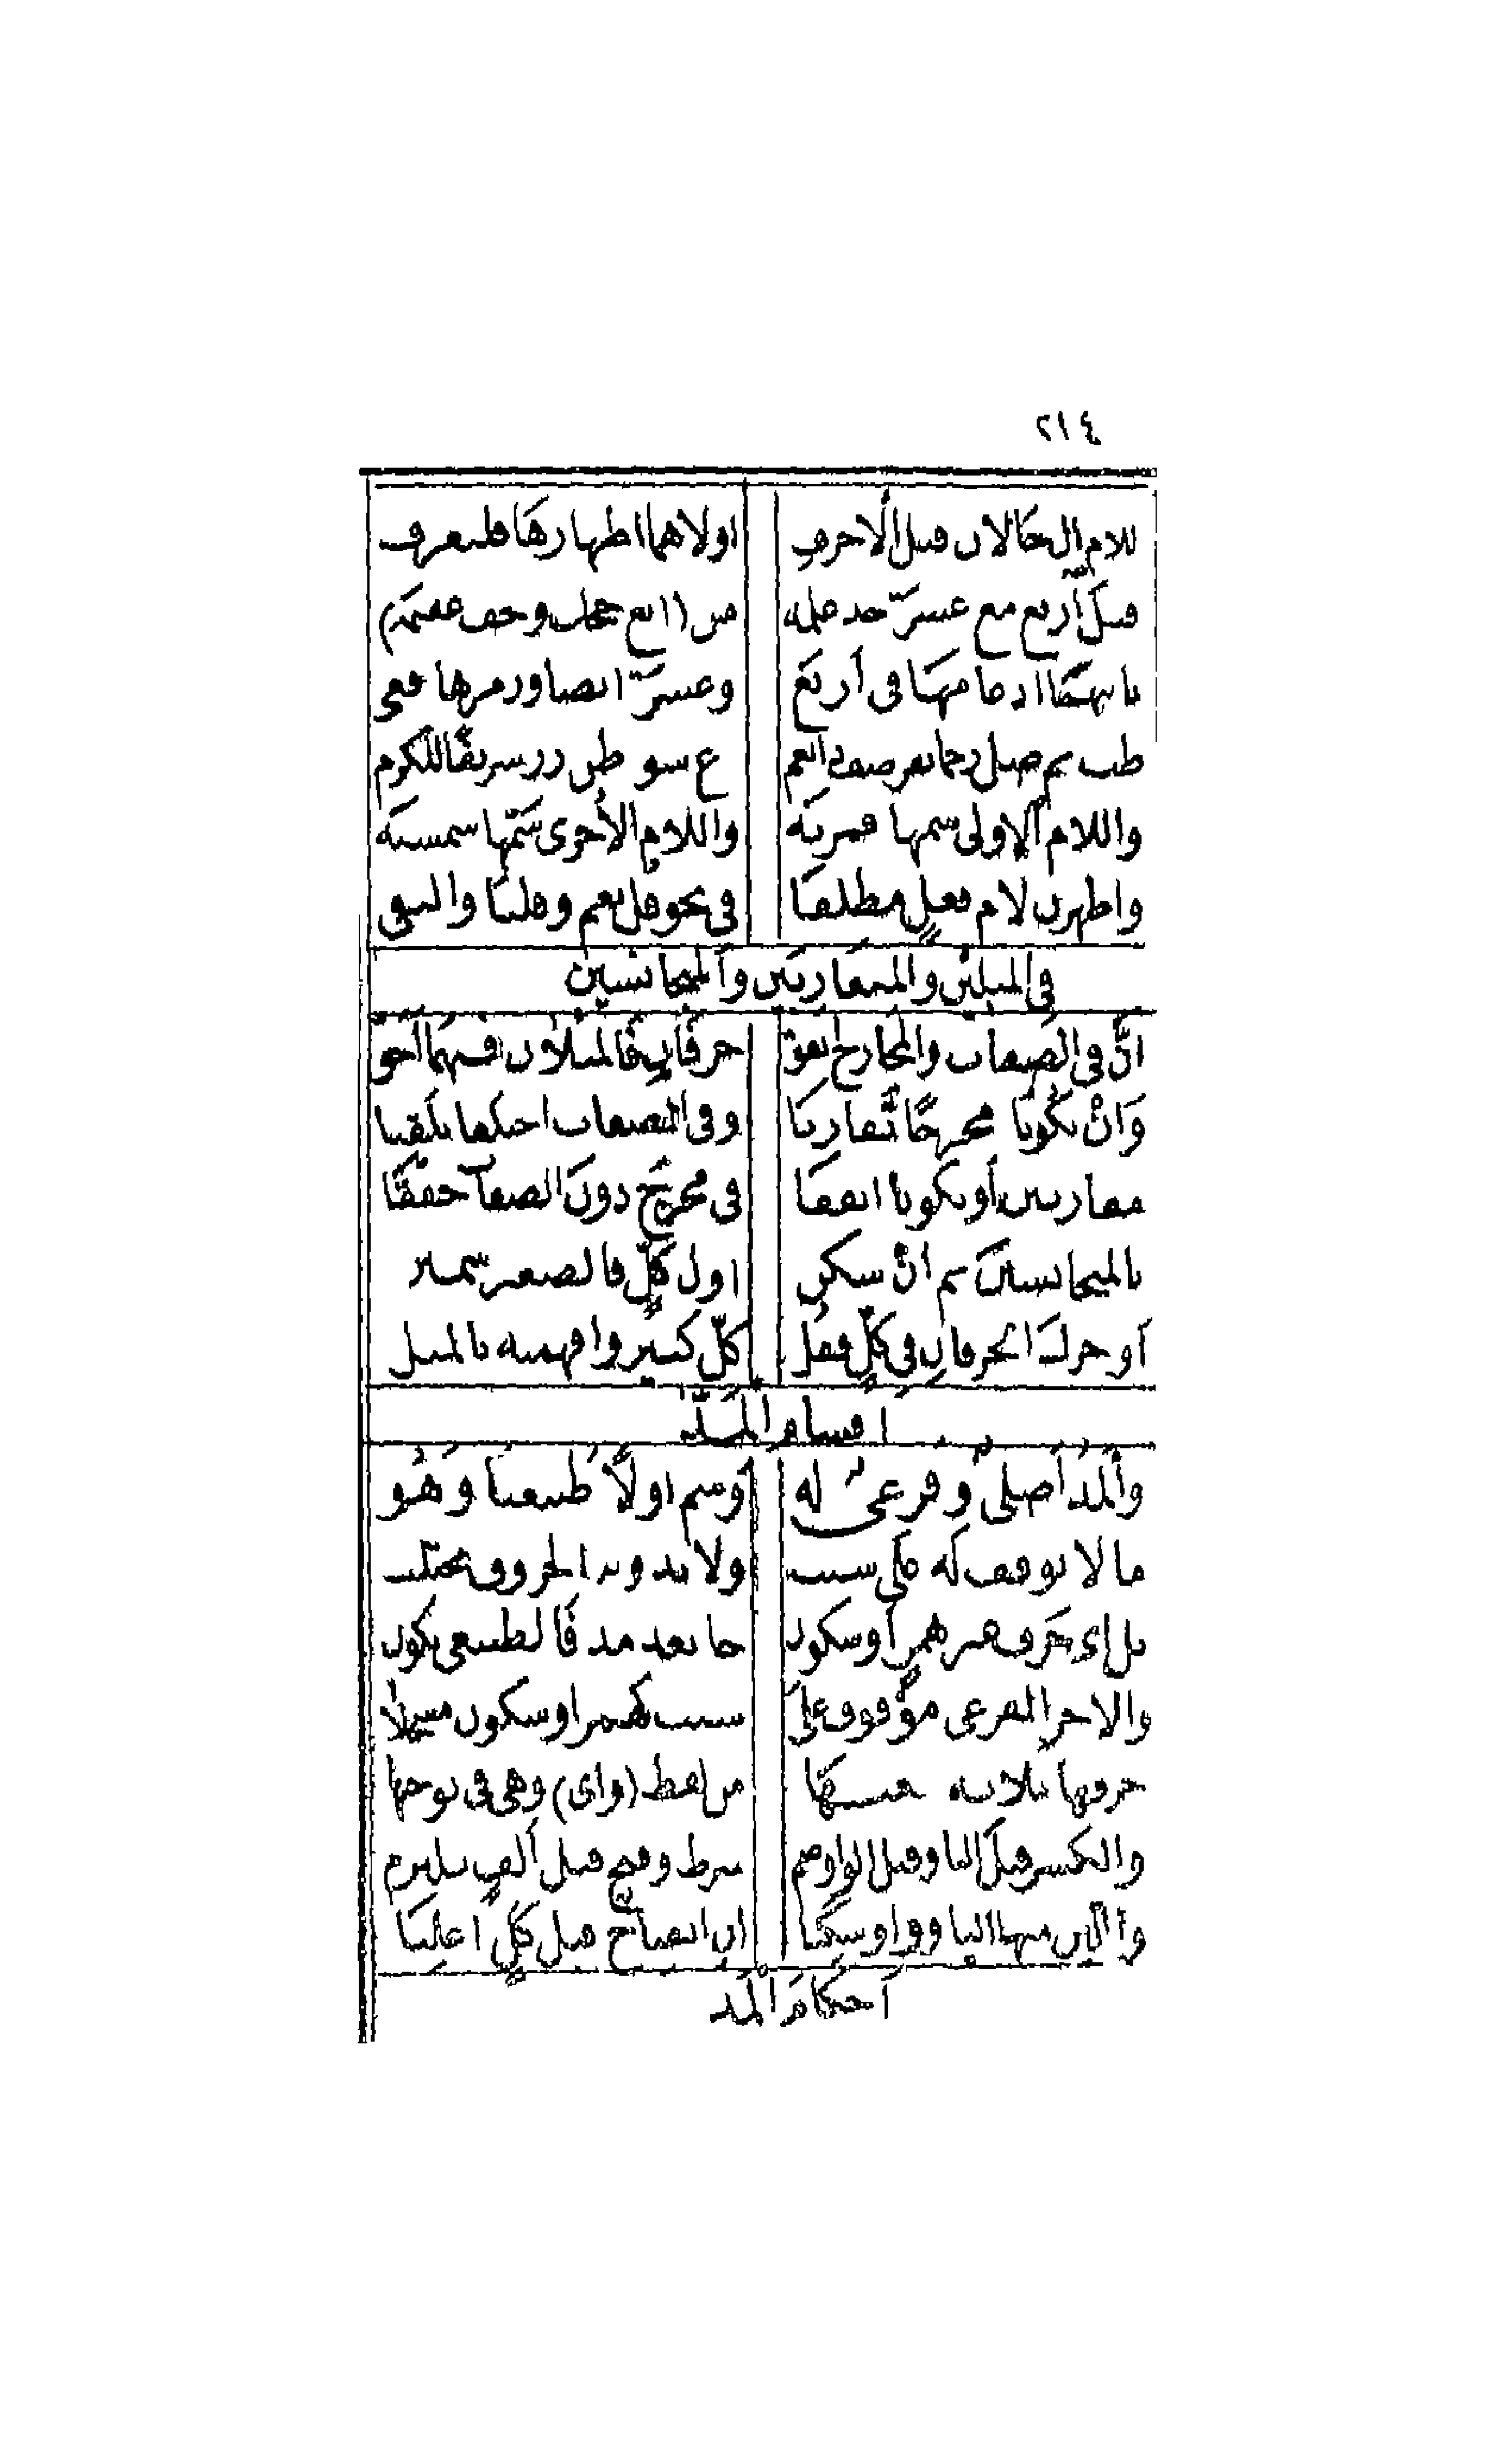 ٢١٤
للام ال حالان قبل الاحرف اولاهما اظهارها فليعرف
قبل أربع مع عشرة خذ علمه من (ابغ حجك وخف عقيمه)
ثانيهما ادغامها في أربع وعشرة ايضا ورمزها فعي
طب ثم صل رحما تفز ضف ذا نعم دع سوء ظن زر شريفا للكرم
واللام الاولى سمها قمريه واللام الأخرى سمها شمسيه
واظهرن لام فعل مطلقا في نحو قل نعم وقلنا والتقى
في المثلين والمتقاربين والمتجانسين
انّ في الصفات والمخارج اتفق حرفان فالمثلان فيهما أحق
وَانْ يكونا مخرجًا تقاربا وفي الصفات اختلفا يلقبا
متقاربين أو يكونا اتفقا في مخرج دون الصفات حققا
بالمتجانسين ثم انْ سكن اول كلّ فالصغير سمين
أو حرك الحرفان في كلّ فقل كلّ كبير وافهمنه بالمثل
اقسام المدّ
والمد أصلي وفرعي له وسم اولًا طبيعيا وهُو
ما لا توقف له على سبب ولا بدونه الحروف تجتلب
بل اي حرف غير همز أو سكون جا بعد مد فالطبيعي يكون
والاخر الفرعي موقوف على سبب كهمز او سكون مسجلا
حروفها ثلاثة فعيها من لفظ (واي) وهي في نوحيها
والكسر قبل اليا وقبل الواو ضم شرط وفتح قبل ألف يلتزم
واللين منها اليا وواو سكنا ان انفتاح قبل كلّ اعلنا
أحكام المد